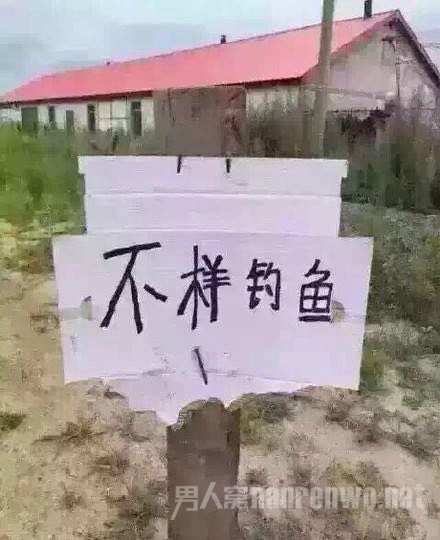 不样钓鱼
男人窝nanrenwo.net